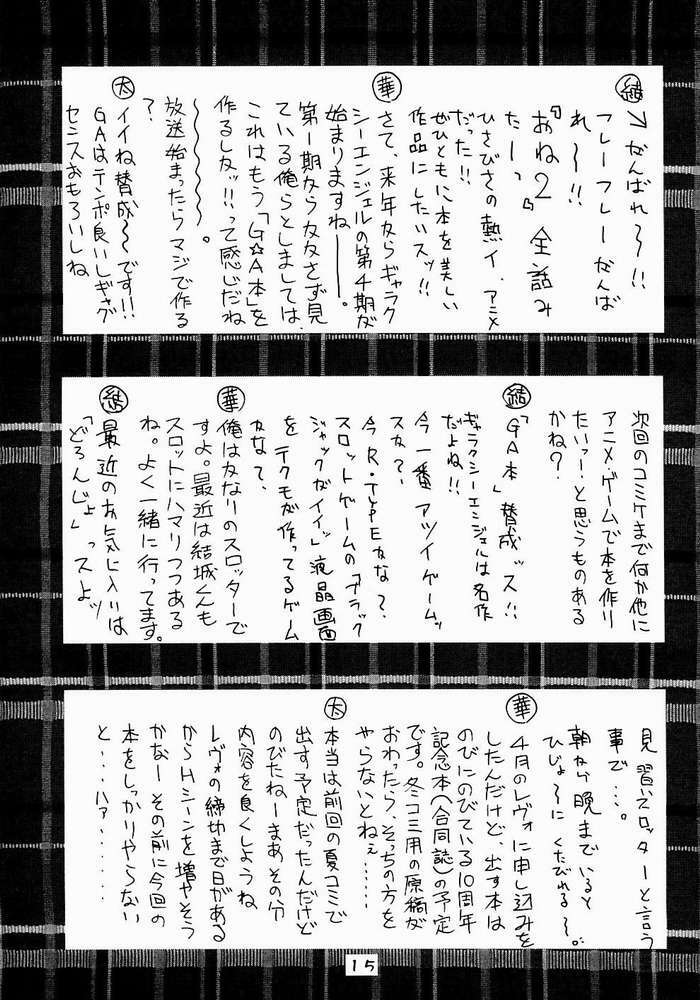 結→がんばれ〜!!
フレーフレーがんば
れ〜!!
『おね2』全話み
たーっ
ひさびさの熱イ、アニメ
だった!!
ぜひともに本を美しい
作品にしたいスッ!!
華
さて、来年からギャラク
シーエンジェルの第4期が
始まりますねー。
第1期から欠かさず見
ている俺らとしましては、
これはもう「G☆A本」を
作るしかッ!!って感じだね
〜。
放送始まったらマジで作る
?
太
イイね賛成〜です!!
GAはテンポ良いしギャグ
センスおもろいしね
次回のコミケまで何か他に
アニメ・ゲームで本を作り
たいっー!と思うものある
かね?
結
「GA本」賛成ッス!!
ギャラクシーエンジェルは名作
だよね!!
今一番アツイゲームッ
スか?、
今R・TYPEかな?、
スロットゲームの「ブラック
ジャックがイイッ」液晶画面
をテクモが作ってるゲーム
かな?、
華
俺はかなりのスロッターで
すよ。最近は結城くんも
スロットにハマりつつある
ね。よく一緒に行ってます。
結
最近のお気に入りは
「どろんじょ」っスよッ
見習いスロッターと言う
事で…。
朝から晩までいると
ひじょ〜に くたびれる〜。
華
4月のレヴォに申し込みを
したんだけど、出す本は
のびにのびている10周年
記念本(合同誌)の予定
です。冬コミ用の原稿が
おわったら、そっちの方を
やらないとねぇ……
太
本当は前回の夏コミで
出す予定だったんだけど
のびたねーまあその分
内容を良くしようね
レヴォの締切まで日がある
からHシーンを増やそう
かなー その前に今回の
本をしっかりやらない
と…ハァ………
15